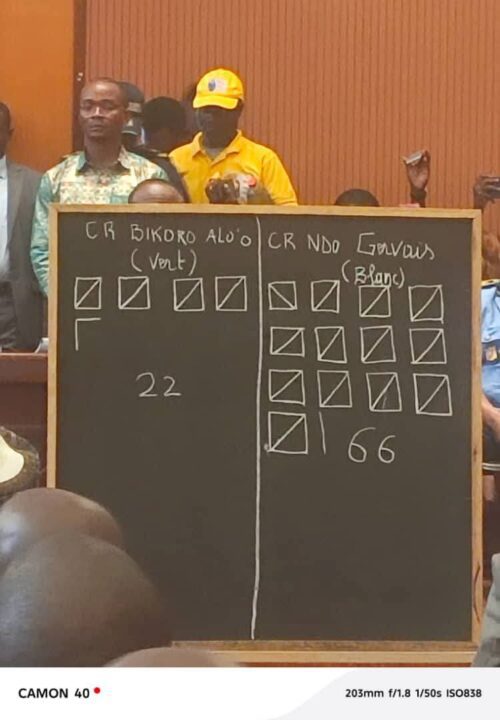 CR BIKORO ALO'O
(Vert)
22
CR NDO Gervais
(Blanc)
66
CAMON 40
203mm f/1.8 1/50s ISO838